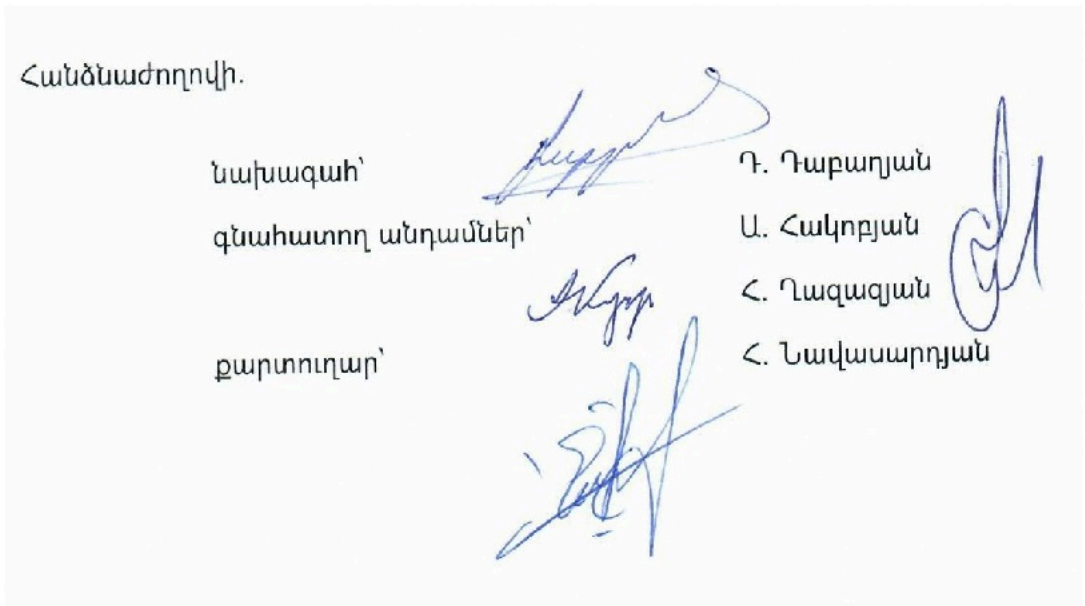 Հանձնաժողովի.
նախագահ՝ Դ. Դաբաղյան
գնահատող անդամներ՝ Ա. Հակոբյան
Հ. Ղազազյան
քարտուղար՝ Հ. Նավասարդյան